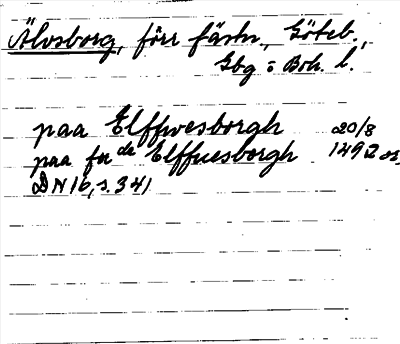 Älvsborg, förr fästn., Göteb.,
Gbg o Boh. l.
paa Elffwesborgh 20/8
paa fn de Elffuesborgh 1492 as,
DN 16, s. 341